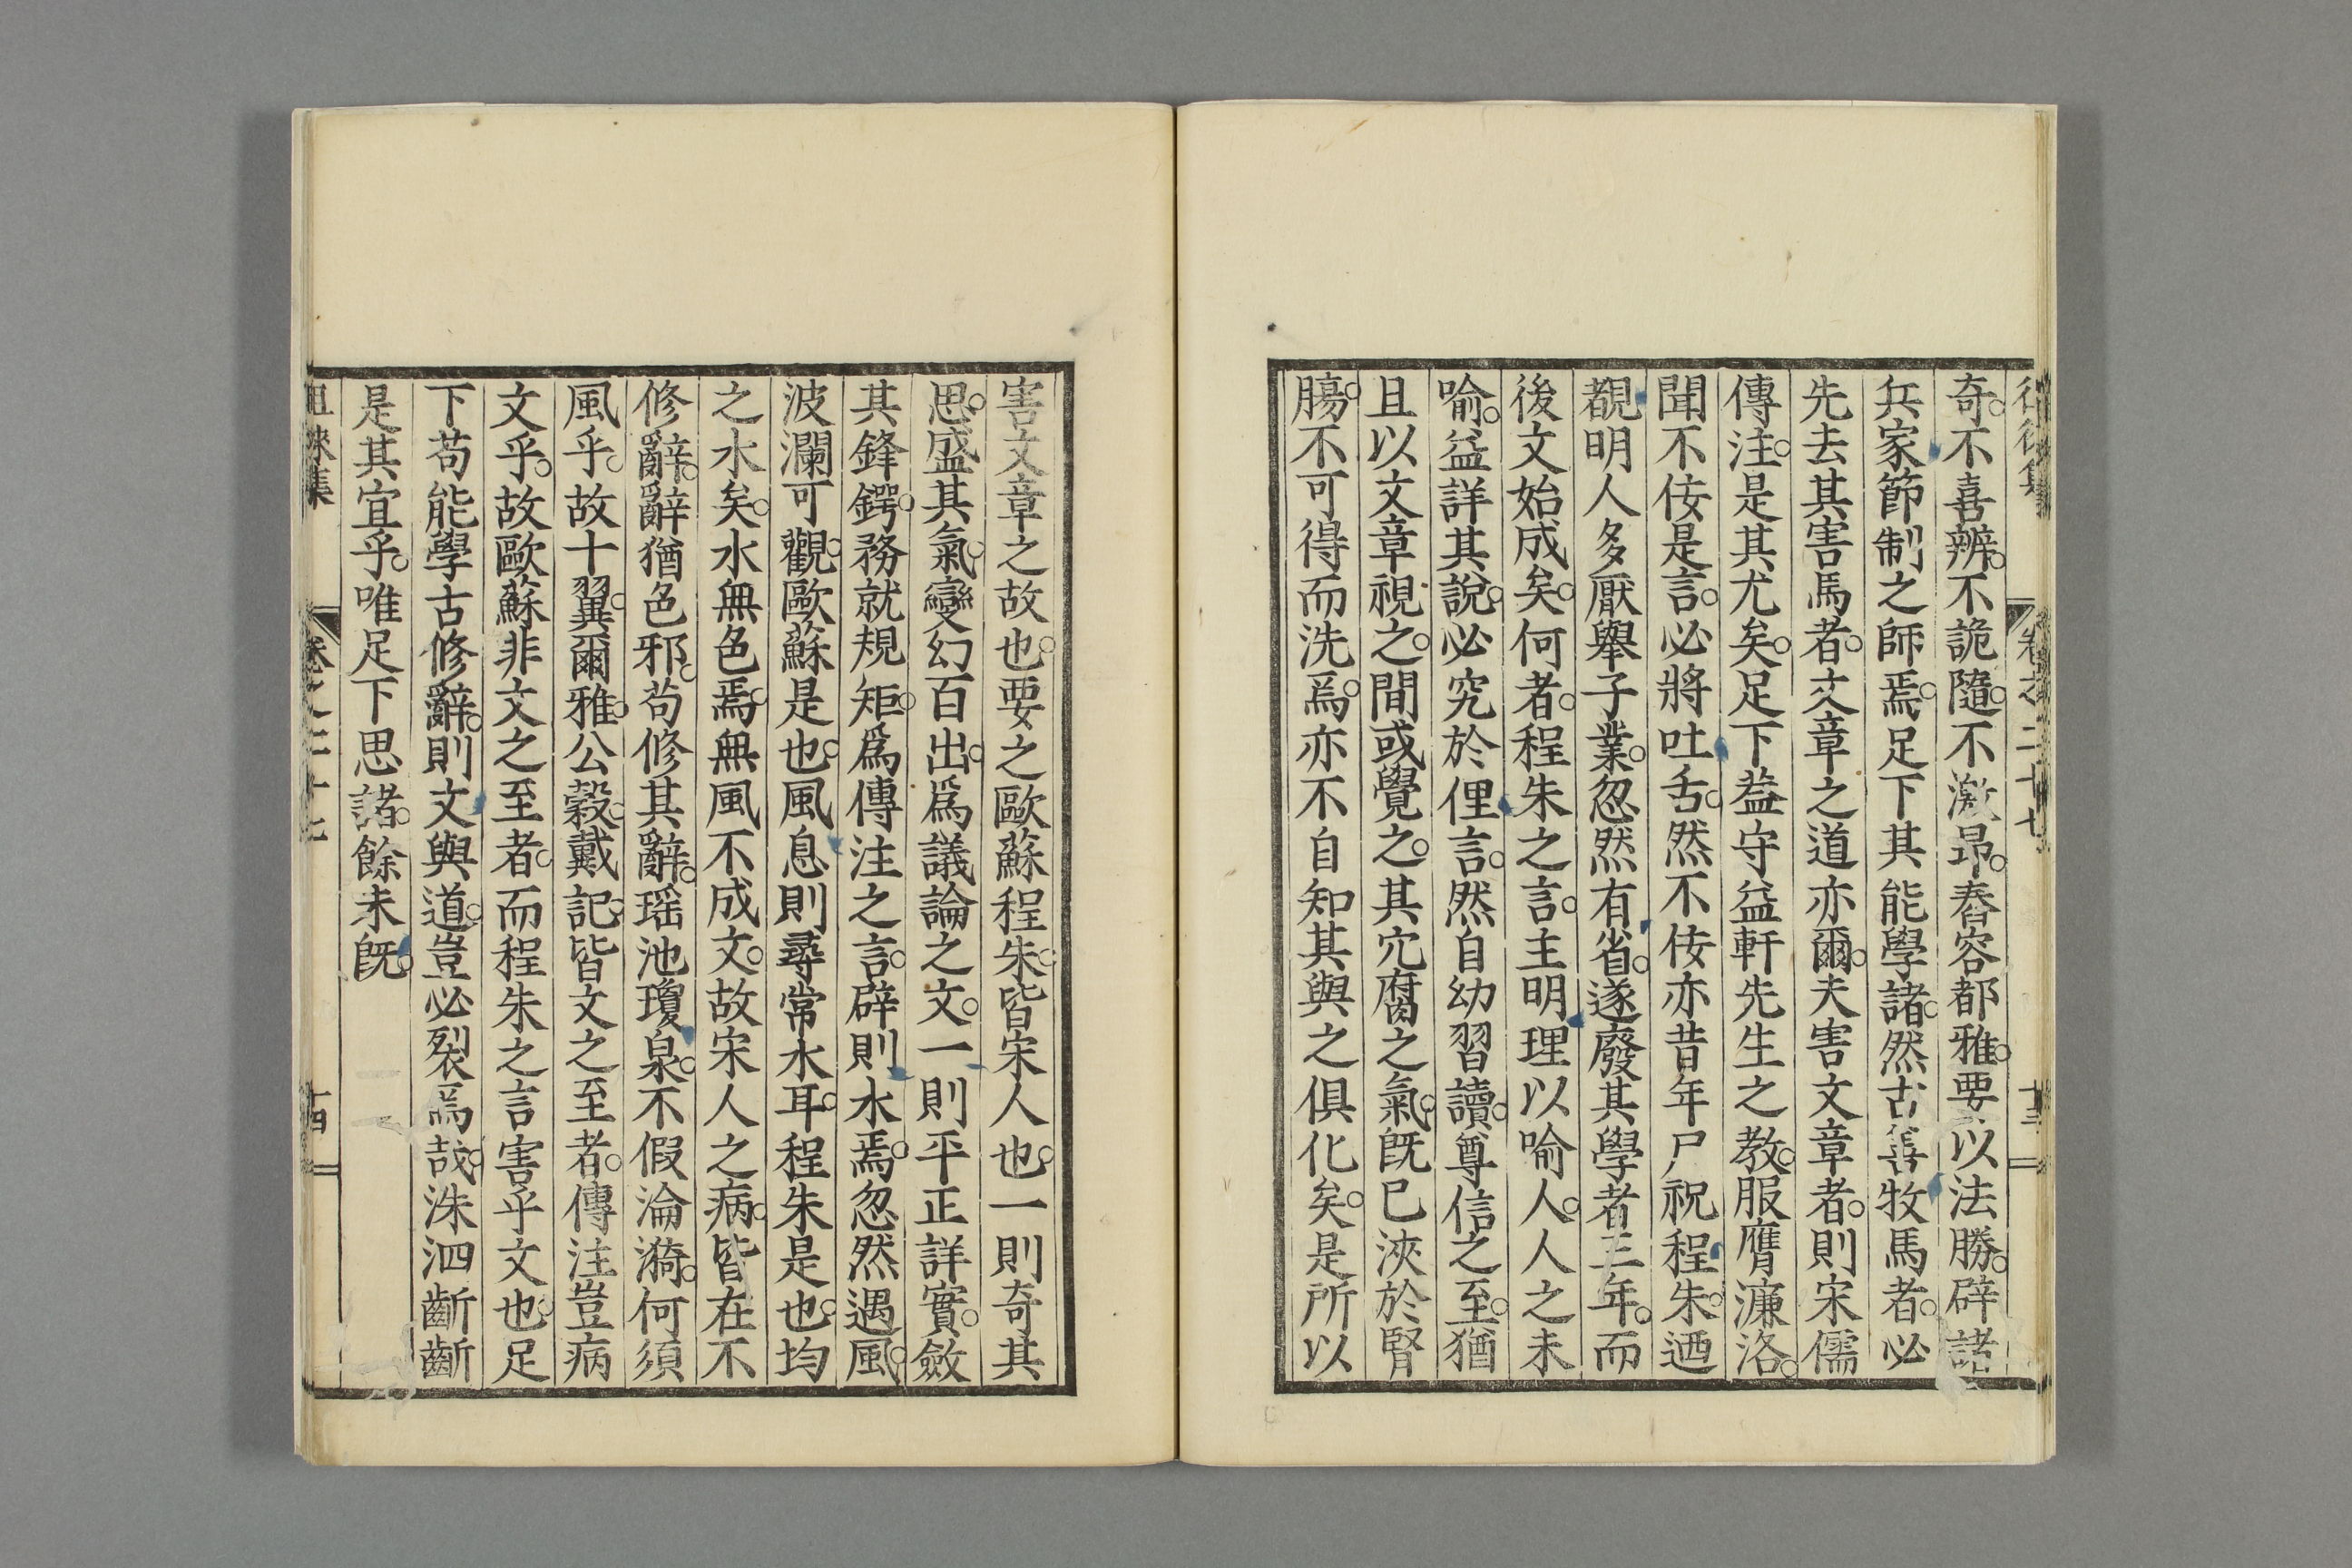 奇。不喜辨。不詭隨。不激昂。舂容都雅。要以法勝。辟諸
兵家節制之師焉。足下其能學諸。然古善牧馬者。必
先去其害馬者。文章之道亦爾。夫害文章者。則宋儒
傳注。是其尤矣。足下葢守益軒先生之教。服膺濂洛。
聞不佞是言。必將吐舌。然不佞亦昔年尸祝程朱。迺
覩明人多厭舉子業。忽然有省。遂廢其學者三年。而
後文始成矣。何者。程朱之言。主明理以喻人。人之未
喻。益詳其說。必究於俚言。然自幼習讀。尊信之至。猶
且以文章視之。間或覺之。其宂腐之氣。既已浹於腎
腸。不可得而洗焉。亦不自知其與之俱化矣。是所以
卷之二十七
十三
害文章之故也。要之歐蘇程朱。皆宋人也。一則奇其
思。盛其氣。變幻百出。爲議論之文。一則平正詳實。斂
其鋒鍔。務就規矩。爲傳注之言。辟則水焉。忽然遇風。
波瀾可觀。歐蘇是也。風息則尋常水耳。程朱是也。均
之水矣。水無色焉。無風不成文。故宋人之病。皆在不
修辭。辭猶色邪。苟修其辭。瑶池瓊泉。不假淪漪。何須
風乎。故十翼。爾雅。公穀。戴記。皆文之至者。傳注豈病
文乎。故歐蘇非文之至者。而程朱之言害乎文也。足
下苟能學古修辭。則文與道。豈必裂焉哉。洙泗齗齗
是其宜乎。唯足下思諸。餘未既。
徂徠集
卷之二十七
十四